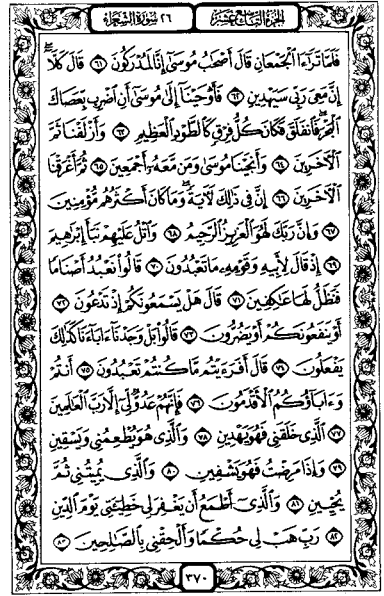 الجزء التاسع عشر
٢٦ سورة الشعراء
فَلَمَّا تَرَٰٓءَا ٱلْجَمْعَانِ قَالَ أَصْحَٰبُ مُوسَىٰٓ إِنَّا لَمُدْرَكُونَ ۝٦١ قَالَ كَلَّآ
إِنَّ مَعِىَ رَبِّى سَيَهْدِينِ ۝٦٢ فَأَوْحَيْنَآ إِلَىٰ مُوسَىٰٓ أَنِ ٱضْرِب بِّعَصَاكَ
ٱلْبَحْرَ فَٱنفَلَقَ فَكَانَ كُلُّ فِرْقٍ كَٱلطَّوْدِ ٱلْعَظِيمِ ۝٦٣ وَأَزْلَفْنَا ثَمَّ
ٱلْءَاخَرِينَ ۝٦٤ وَأَنجَيْنَا مُوسَىٰ وَمَن مَّعَهُۥٓ أَجْمَعِينَ ۝٦٥ ثُمَّ أَغْرَقْنَا
ٱلْءَاخَرِينَ ۝٦٦ إِنَّ فِى ذَٰلِكَ لَءَايَةً وَمَا كَانَ أَكْثَرُهُم مُّؤْمِنِينَ
۝٦٧ وَإِنَّ رَبَّكَ لَهُوَ ٱلْعَزِيزُ ٱلرَّحِيمُ ۝٦٨ وَٱتْلُ عَلَيْهِمْ نَبَأَ إِبْرَٰهِيمَ
۝٦٩ إِذْ قَالَ لِأَبِيهِ وَقَوْمِهِۦ مَا تَعْبُدُونَ ۝٧٠ قَالُوا۟ نَعْبُدُ أَصْنَامًا
فَنَظَلُّ لَهَا عَٰكِفِينَ ۝٧١ قَالَ هَلْ يَسْمَعُونَكُمْ إِذْ تَدْعُونَ ۝٧٢
أَوْ يَنفَعُونَكُمْ أَوْ يَضُرُّونَ ۝٧٣ قَالُوا۟ بَلْ وَجَدْنَآ ءَابَآءَنَا كَذَٰلِكَ
يَفْعَلُونَ ۝٧٤ قَالَ أَفَرَءَيْتُم مَّا كُنتُمْ تَعْبُدُونَ ۝٧٥ أَنتُمْ
وَءَابَآؤُكُمُ ٱلْأَقْدَمُونَ ۝٧٦ فَإِنَّهُمْ عَدُوٌّ لِّىٓ إِلَّا رَبَّ ٱلْعَٰلَمِينَ
۝٧٧ ٱلَّذِى خَلَقَنِى فَهُوَ يَهْدِينِ ۝٧٨ وَٱلَّذِى هُوَ يُطْعِمُنِى وَيَسْقِينِ
۝٧٩ وَإِذَا مَرِضْتُ فَهُوَ يَشْفِينِ ۝٨٠ وَٱلَّذِى يُمِيتُنِى ثُمَّ
يُحْيِينِ ۝٨١ وَٱلَّذِىٓ أَطْمَعُ أَن يَغْفِرَ لِى خَطِيٓـَٔتِى يَوْمَ ٱلدِّينِ
۝٨٢ رَبِّ هَبْ لِى حُكْمًا وَأَلْحِقْنِى بِٱلصَّٰلِحِينَ ۝٨٣
٣٧٠